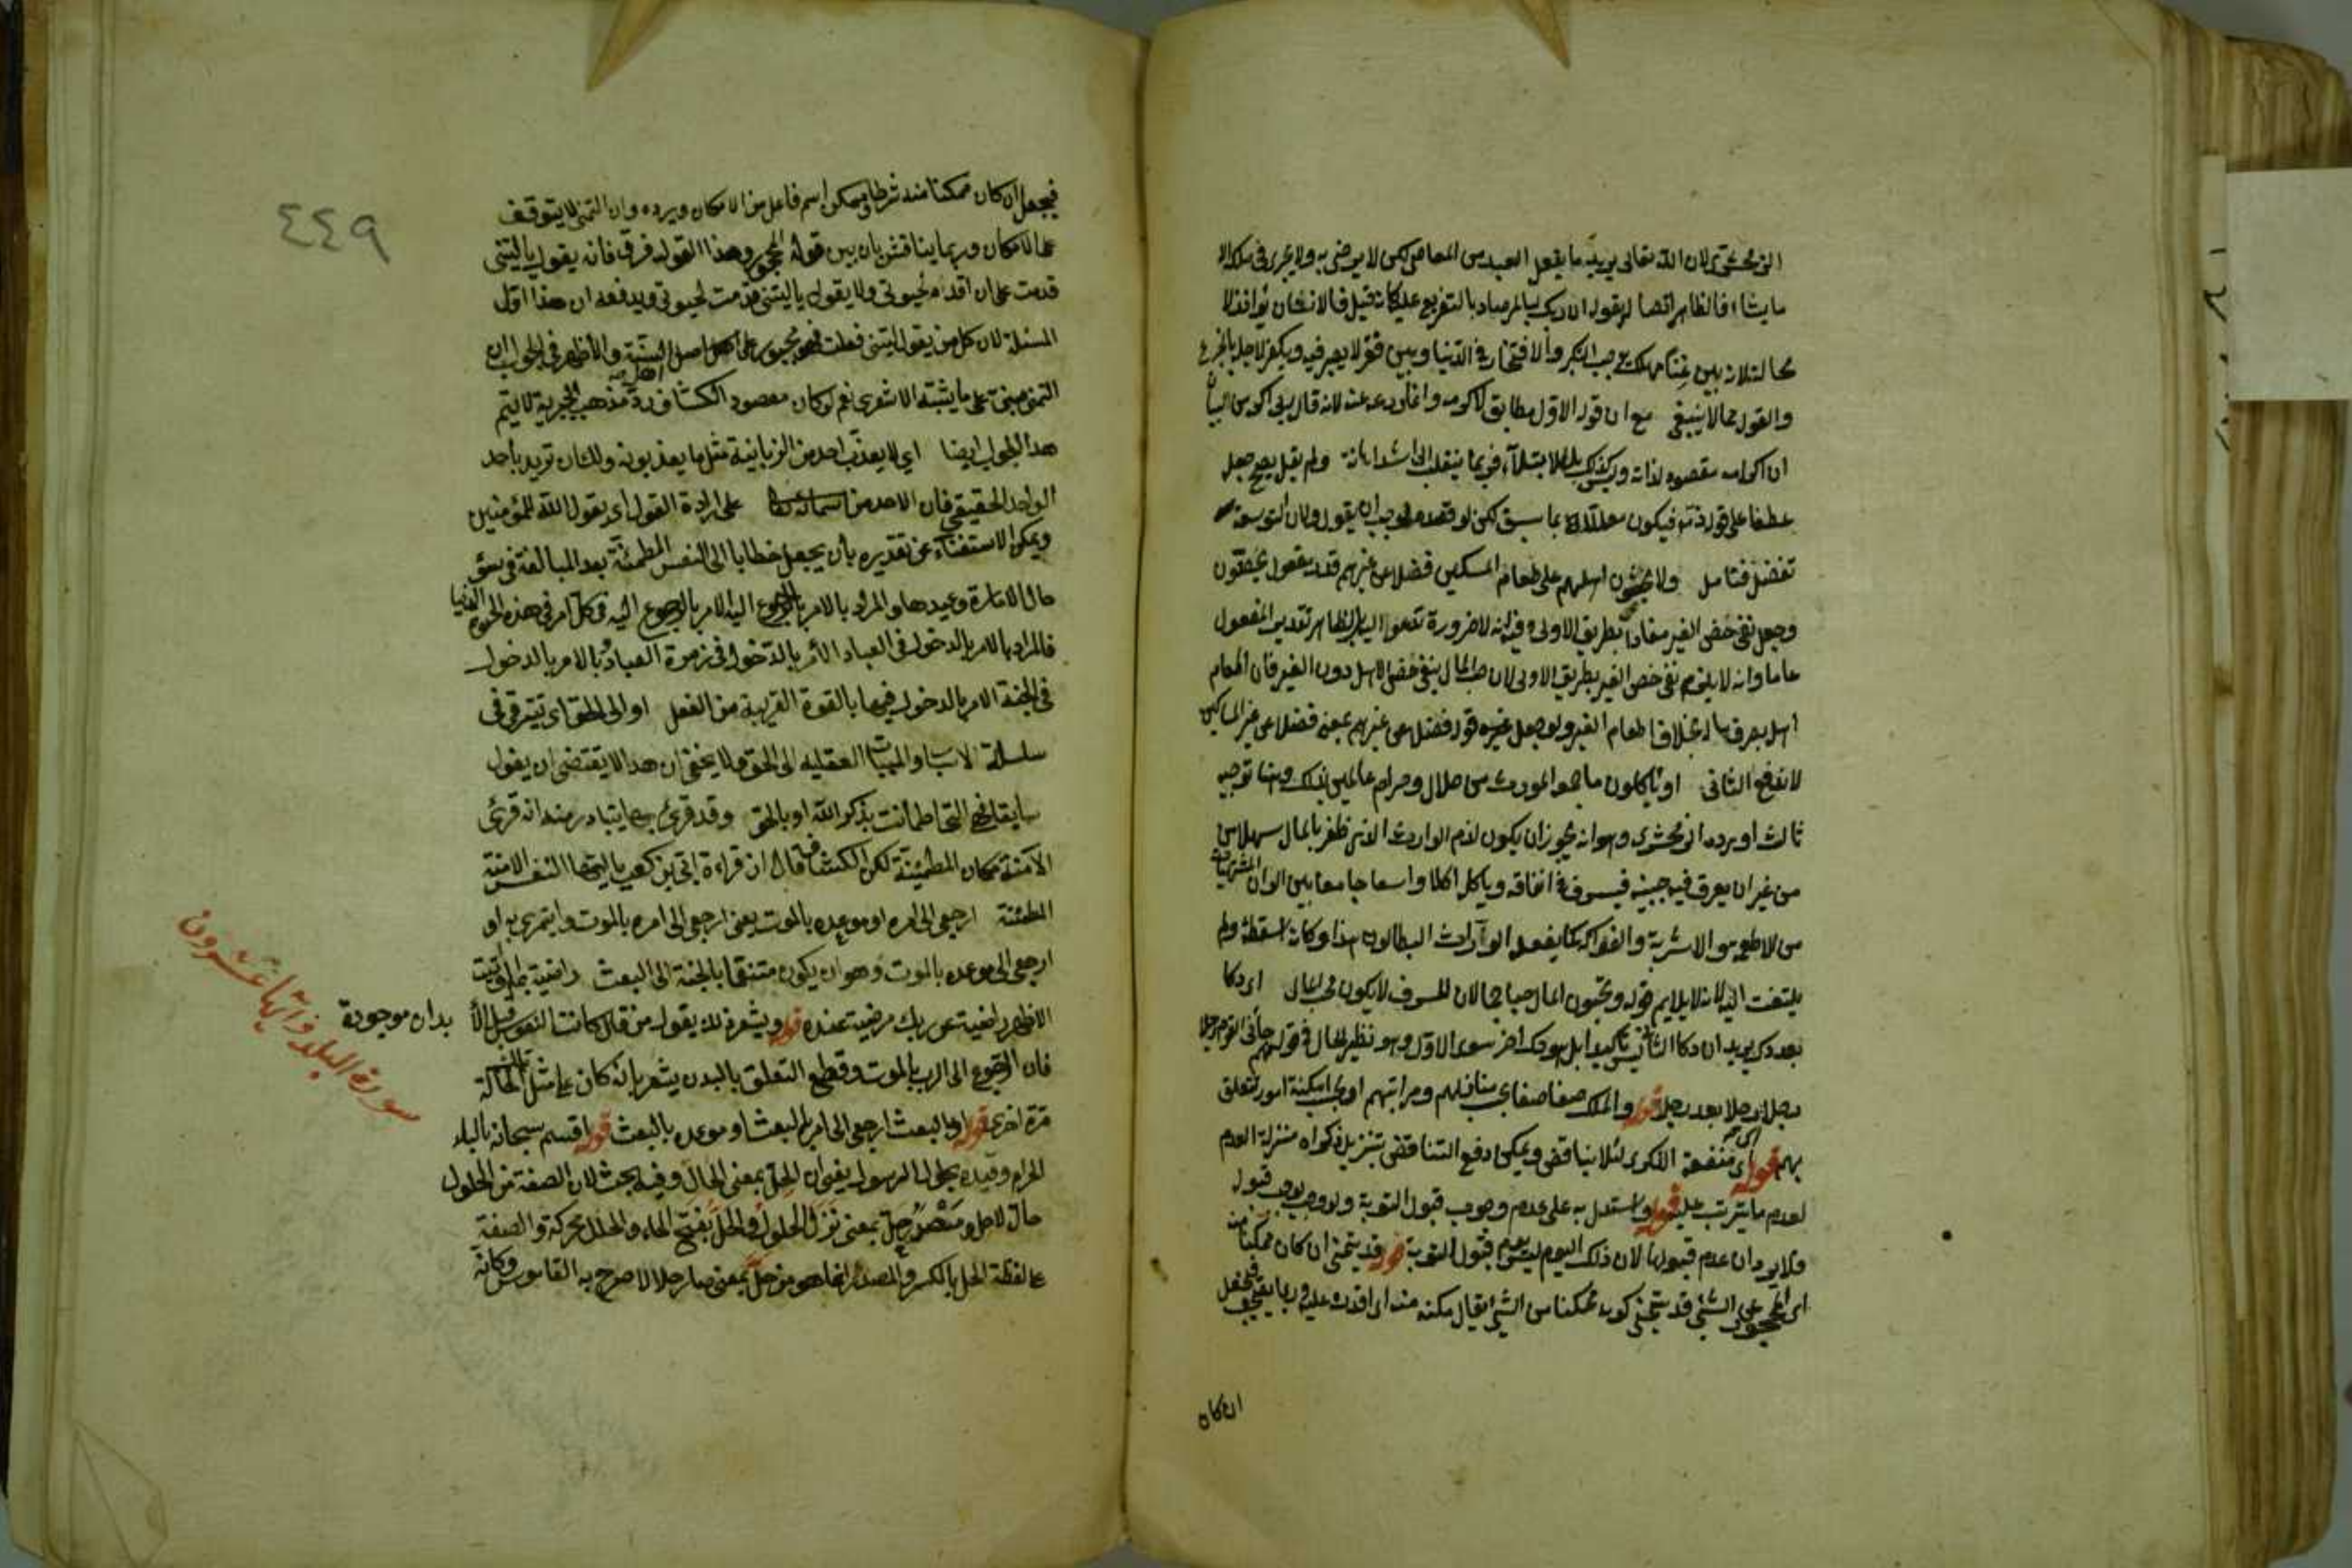 الزمخشري لان الله تعالى يريد ما يفعل العبد من المعاصي لكن لا يرضى به ولا يجري في ملكه الا
ما يشاء فالظاهر اتصاله بقوله ان ربك لبالمرصاد بالتفريع عليه كانه قيل فالانسان يؤاخذ لا
محالة لانه بين غنا مهلك يوجب التكبر والافتخار في الدنيا وبين فقر لا يصبر فيه ويكفر لاجله بالجزع
والقول بما لا ينبغي مع ان قوله الاول مطابق لاكرمه وانما ردعه عنه لانه قال ربي اكرمن
ان اكرامه مقصود لذاته وليس كذلك بل للابتلاء فربما ينقلب الى اشد اهانة ولم يقل يصح جعل
عطفا على قوله فيكون معللا بما سبق لكن لو قصده لوجب ان يقول ولان التوسعة
تفضل فتأمل ولا يحثون اهلهم على طعام المسكين فضلا عن غيرهم قدر مفعول يحضون
وجعل نفي حض الغير مفادا بطريق الاولى وفيه انه لا ضرورة تدعو اليه بل الظاهر تقدير المفعول
عاما وانه لا يلزم نفي حض الغير بطريق الاولى لان حب المال ينفي حض الاهل دون الغير فان اطعام
اهله يصرف ماله بخلاف اطعام الغير ولو جعل غيره قوله فضلا عن غيرهم بمعنى فضلا عن غير المساكين
لاندفع الثاني او يأكلون ما جمعه المورث من حلال وحرام عالمين بذلك وهنا توجيه
ثالث اورده الزمخشري وهو انه يجوز ان يكون لذم الوارث الذي ظفر بالمال سهلا
من غير ان يعرق فيه جبينه فيسرف في انفاقه وياكل اكلا واسعا جامعا بين الوان المشتهيات
من الاطعمة والاشربة والفواكه كما يفعل الوارث البطالون هذا وكانه اسقطه ولم
يلتفت اليه لانه لا يلايم قوله وتحبون المال حبا جما لان المسرف لا يكون محب المال اي دكا
بعد دك يريد ان دكا الثاني ليس تأكيدا بل هو دك اخر سوى الاول وهو نظير الحال في قولهم جاءني القوم رجلا
رجلا اي رجلا بعد رجل قوله والملك صفا صفا بحسب منازلهم ومراتبهم او بحسب امكنة امور تتعلق
بهم قوله اي منفعة الذكرى لئلا يناقض ويمكن دفع التناقض بتنزيل ذكراه منزلة العدم
لعدم ما يترتب عليه قوله واستدل به على عدم وجوب قبول التوبة ولو وجب قبول
ولا يرد ان عدم قبولها لان ذلك اليوم ليس يوم قبول التوبة قوله قد يتمنى ان كان ممكنا منه
اي المحجور عن الشئ قد يتمنى كونه ممكنا من الشئ يقال مكنه منه اي اقدره عليه وربما يصحف فيجعل
ان كان
٤٤٩
فيجعل ان كان ممكنا منه شرطا وممكن اسم فاعل من الامكان ويرده وان التمني لا يتوقف
على الامكان وربما يناقش بان بين قوله المحجور وهذا القول فرق فانه يقول يا ليتني
قدمت على ان اقدم لحيوتي ولا يقول يا ليتني قدمت لحيوتي ويدفعه ان هذا اول
المسئلة لان كل من يقول ليتني فعلت فهو محجور على اصل السنة والاظهر في الجواب ان
التمني مبني على ما يثبته الاشعري نعم لو كان مقصود الكشاف رد مذهب الجبرية لا يتم
هذا الجواب ايضا اي لا يعذب احد من الزبانية مثل ما يعذبونه ولك ان تريد بأحد
الواحد الحقيقي فان الاحد من اسمائه على ارادة القول اي يقول الله للمؤمنين
ويمكن الاستغناء عن تقديره بأن يجعل خطابا الى النفس المطمئنة بعد المبالغة في سوء
حال الامارة وعيدها والمراد بالامر بالرجوع اليه الامر بالرجوع اليه في كل امر في هذه الحيوة الدنيا
فالمراد بالامر بالدخول في العباد الأمر بالدخول في زمرة العباد وبالامر بالدخول
في الجنة الامر بالدخول فيها بالقوة القريبة من الفعل او الى الحق اي تترقى في
سلسلة الاسباب والمسببات العقلية الى الحق ولا يخفى ان هذا لا يقتضي ان يقول
التي اطمأنت بذكر الله او بالحق وقد قرئ بها يتبادر منه انه قرئ
الآمنة مكان المطمئنة لكن الكشاف قال ان قراءة ابي بن كعب يا ايتها النفس الامنة
المطمئنة ارجعي الى امره او موعده بالموت يعني ارجعي الى امره بالموت وايتمري به او
ارجعي الى موعده بالموت وهو ان يكون متنعما بالجنة الى البعث راضية بما اوتيت
الاظهر راضية عن ربك مرضية عنده قوله ويشعر ذلك بقول من قال كانت النفوس قبل الأ
بدان موجودة
فان الرجوع الى الرب بالموت وقطع التعلق بالبدن يشعر بانه كان على مثل هذه الحالة
مرة اخرى قوله او بالبعث ارجعي الى امره بالبعث او موعده بالبعث قوله اقسم سبحانه بالبلد
الحرام وقيده بحلول الرسول يعني ان الحل بمعنى الحال وفيه بحث لان الصفة من الحلول
حال لا حل ومصدر حل بمعنى نزل الحلول والحل بفتح الحاء والحلل محركة والصفة
على لفظة الحل بالكسر والمصدر انما هو من حل بمعنى صار حلالا صرح به القاموس وكانه
سورة البلد وآياتها عشرون